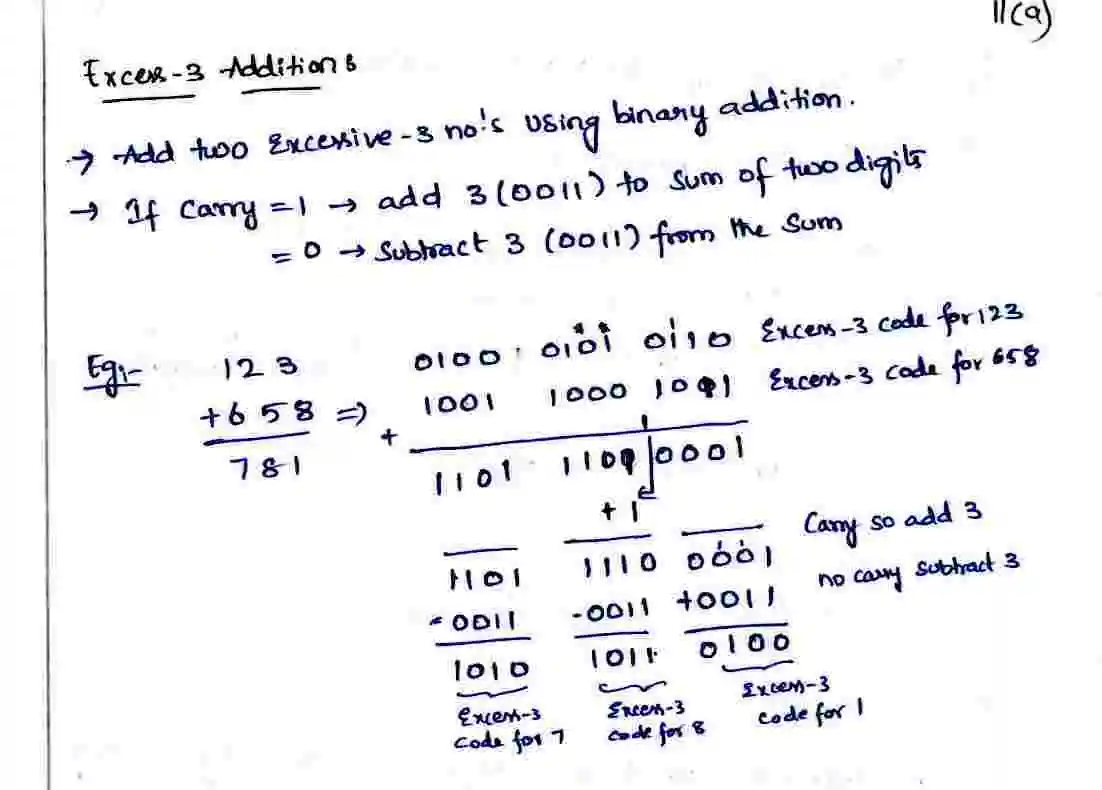 11(a)
Excess-3 Additions
→ Add two Excessive-3 no's using binary addition.
→ If Carry = 1 → add 3 (0011) to sum of two digits
= 0 → Subtract 3 (0011) from the sum
Eg:- 123 0100 0101 0110 Excess-3 code for 123
+658 ⇒ + 1001 1000 1011 Excess-3 code for 658
781 1101 1101 0001
+1
Carry so add 3
1101 1110 0001 no carry subtract 3
-0011 -0011 +0011
1010 1011 0100
Excess-3 Excess-3 Excess-3
code for 7 code for 8 code for 1